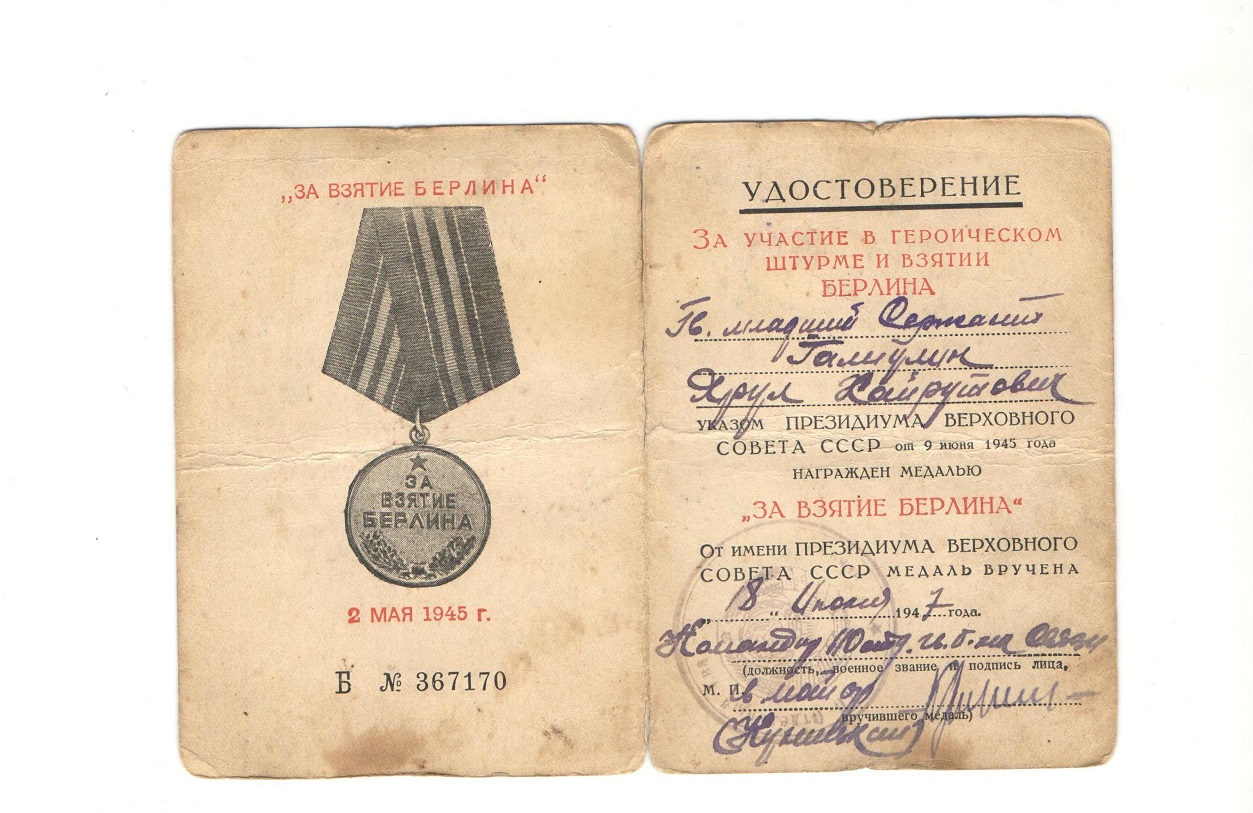 „ЗА ВЗЯТИЕ БЕРЛИНА“
ЗА
ВЗЯТИЕ
БЕРЛИНА
2 МАЯ 1945 г.
Б № 367170
УДОСТОВЕРЕНИЕ
ЗА УЧАСТИЕ В ГЕРОИЧЕСКОМ
ШТУРМЕ И ВЗЯТИИ
БЕРЛИНА
Гв. младший Сержант
Галиулин
Ярул Хайрутович
УКАЗОМ ПРЕЗИДИУМА ВЕРХОВНОГО
СОВЕТА СССР от 9 июня 1945 года
НАГРАЖДЕН МЕДАЛЬЮ
„ЗА ВЗЯТИЕ БЕРЛИНА“
От имени ПРЕЗИДИУМА ВЕРХОВНОГО
СОВЕТА СССР МЕДАЛЬ ВРУЧЕНА
„18“ Июня 1947 года.
Командир 10 Связи
(должность, военное звание и подпись лица,
М. П. в майор
вручившего медаль)